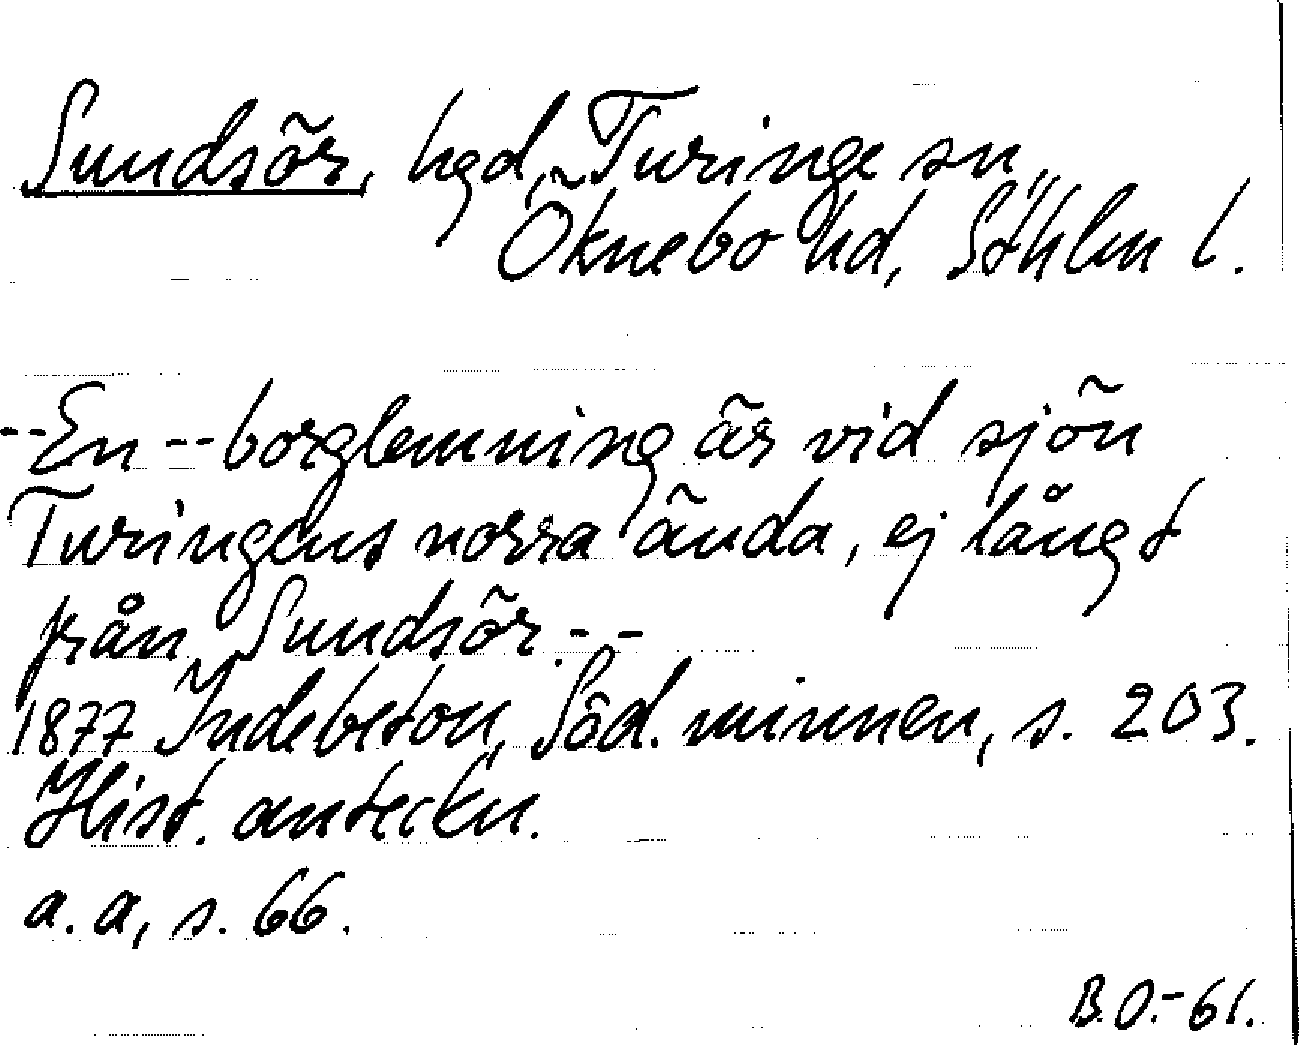 Sundsör, hgd, Turinge sn,
Öknebo hd, Sthlm l.
--En--borglemning är vid sjön
Turingens norra ända, ej långt
från Sundsör.--
1877 Indebetou, Söd. minnen, s. 203.
Hist. anteckn.
a. a, s. 66.
B.O.-61.